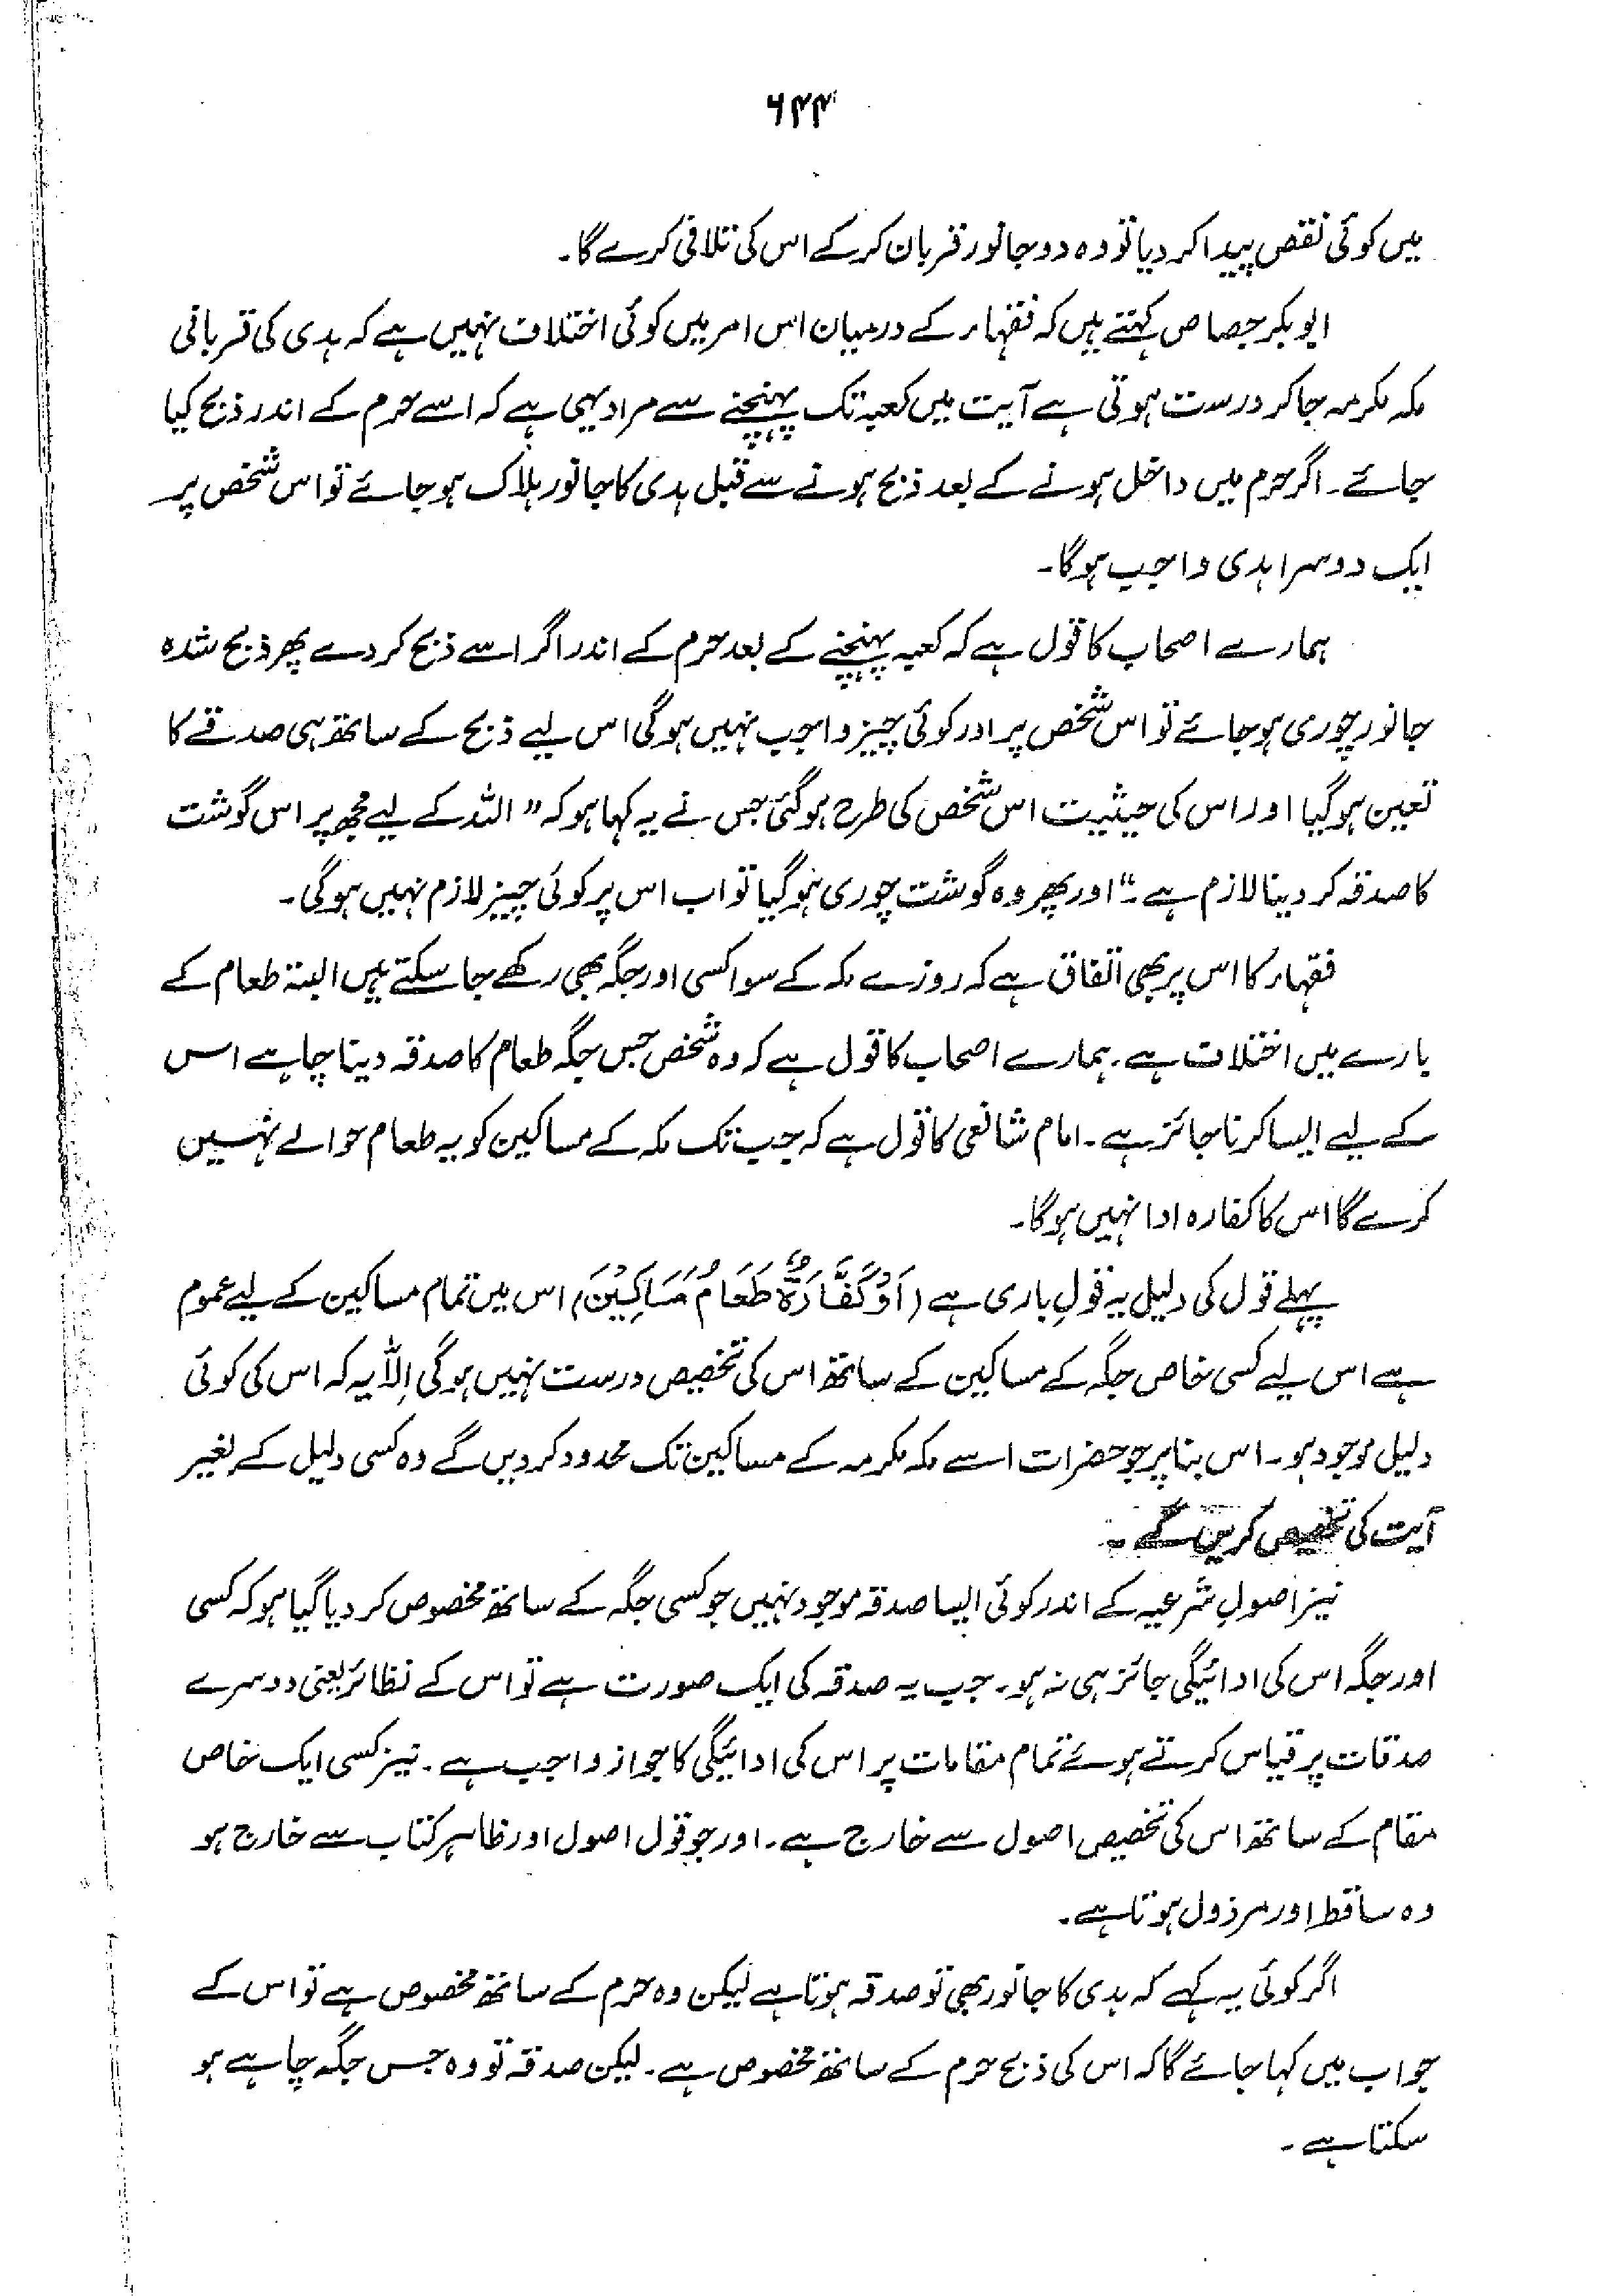 ۶۴۴
میں کوئی نقص پیدا کر دیا تو وہ دو جانور قربان کر کے اس کی تلافی کرے گا۔
ابو بکر جصاص کہتے ہیں کہ فقہاء کے درمیان اس امر میں کوئی اختلاف نہیں ہے کہ ہدی کی قربانی
مکہ مکرمہ جا کر درست ہوتی ہے آیت میں کعبہ تک پہنچنے سے مراد یہی ہے کہ اسے حرم کے اندر ذبح کیا
جائے۔ اگر حرم میں داخل ہونے کے بعد ذبح ہونے سے قبل ہدی کا جانور ہلاک ہو جائے تو اس شخص پر
ایک دوسرا ہدی واجب ہوگا۔
ہمارے اصحاب کا قول ہے کہ کعبہ پہنچنے کے بعد حرم کے اندر اگر اسے ذبح کر دے پھر ذبح شدہ
جانور چوری ہو جائے تو اس شخص پر اور کوئی چیز واجب نہیں ہوگی اس لیے ذبح کے ساتھ ہی صدقے کا
تعین ہو گیا اور اس کی حیثیت اس شخص کی طرح ہو گئی جس نے یہ کہا ہو کہ "اللہ کے لیے مجھ پر اس گوشت
کا صدقہ کر دینا لازم ہے۔" اور پھر وہ گوشت چوری ہو گیا تو اب اس پر کوئی چیز لازم نہیں ہوگی۔
فقہاء کا اس پر بھی اتفاق ہے کہ روزے مکہ کے سوا کسی اور جگہ بھی رکھے جا سکتے ہیں البتہ طعام کے
بارے میں اختلاف ہے۔ ہمارے اصحاب کا قول ہے کہ وہ شخص جس جگہ طعام کا صدقہ دینا چاہے اس
کے لیے ایسا کرنا جائز ہے۔ امام شافعی کا قول ہے کہ جب تک مکہ کے مساکین کو یہ طعام حوالے نہیں
کرے گا اس کا کفارہ ادا نہیں ہوگا۔
پہلے قول کی دلیل یہ قولِ باری ہے (اَوْ كَفَّارَةٌ طَعَامُ مَسَاكِيْنَ) اس میں تمام مساکین کے لیے عموم
ہے اس لیے کسی خاص جگہ کے مساکین کے ساتھ اس کی تخصیص درست نہیں ہوگی اِلّا یہ کہ اس کی کوئی
دلیل موجود ہو۔ اس بنا پر جو حضرات اسے مکہ مکرمہ کے مساکین تک محدود کر دیں گے وہ کسی دلیل کے بغیر
آیت کی تخصیص کریں گے۔
نیز اصولِ شرعیہ کے اندر کوئی ایسا صدقہ موجود نہیں جو کسی جگہ کے ساتھ مخصوص کر دیا گیا ہو کہ کسی
اور جگہ اس کی ادائیگی جائز ہی نہ ہو۔ جب یہ صدقہ کی ایک صورت ہے تو اس کے نظائر یعنی دوسرے
صدقات پر قیاس کرتے ہوئے تمام مقامات پر اس کی ادائیگی کا جواز واجب ہے۔ نیز کسی ایک خاص
مقام کے ساتھ اس کی تخصیص اصول سے خارج ہے۔ اور جو قول اصول اور ظاہر کتاب سے خارج ہو
وہ ساقط اور مرذول ہوتا ہے۔
اگر کوئی یہ کہے کہ ہدی کا جانور بھی تو صدقہ ہوتا ہے لیکن وہ حرم کے ساتھ مخصوص ہے تو اس کے
جواب میں کہا جائے گا کہ اس کی ذبح حرم کے ساتھ مخصوص ہے۔ لیکن صدقہ تو وہ جس جگہ چاہے ہو
سکتا ہے۔